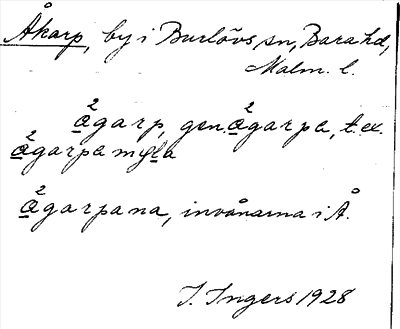 Åkarp, by i Burlövs sn, Bara hd,
Malm. l.
a²garp, gen. a²garpa, t. ex.
a²garpa myla
a²garpana, invånarna i Å.
I. Ingers 1928